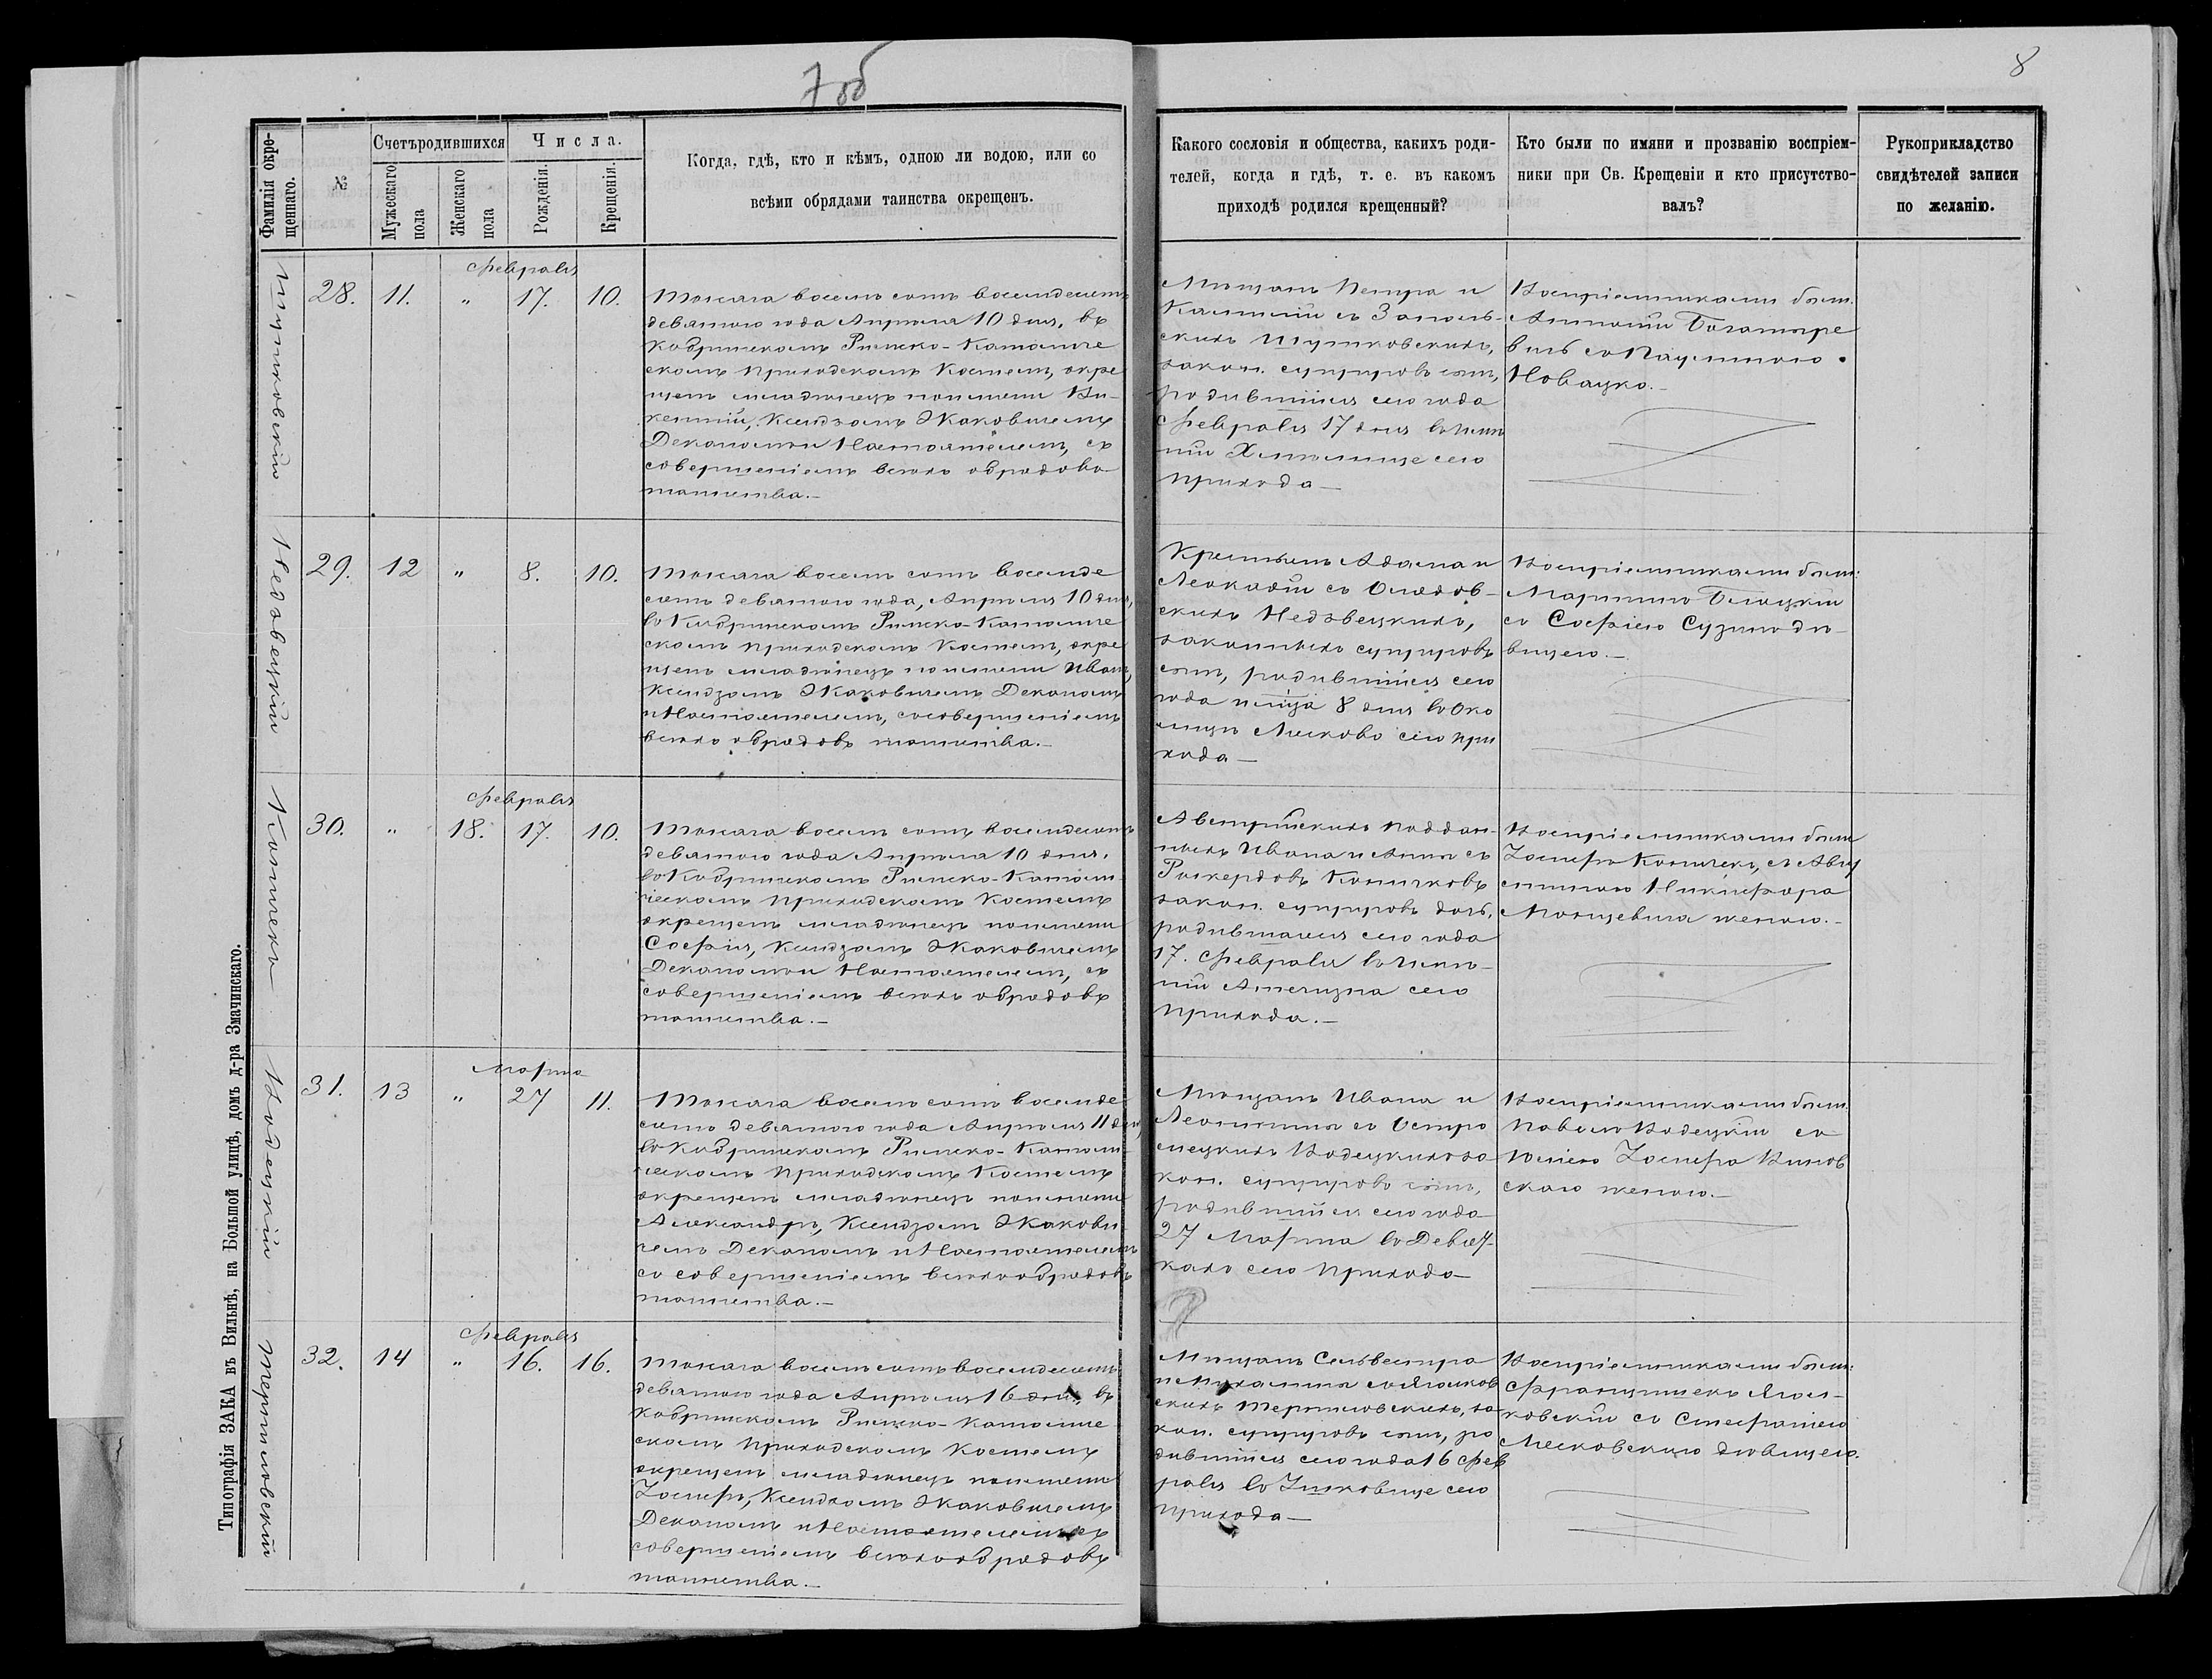 7 об
8
Фамилія окре-
щеннаго.
№
Счетъ родившихся
Мужескаго
пола
Женскаго
пола
Числа.
Рожденія.
Крещенія.
Когда, гдѣ, кто и кѣмъ, одною ли водою, или со
всѣми обрядами таинства окрещенъ.
Какого сословія и общества, какихъ роди-
телей, когда и гдѣ, т. е. въ какомъ
приходѣ родился крещенный?
Кто были по имяни и прозванію воспріем-
ники при Св. Крещеніи и кто присутство-
валъ?
Рукоприкладство
свидѣтелей записи
по желанію.
28.
11.
"
Февраля
17.
10.
Тысяча восемь сотъ восемдесятъ
девятого года Апрѣля 10 дня, въ
Кобринскомъ Римско-Католиче
скомъ приходскомъ Костелѣ, окре
щенъ младенецъ по имени Ви-
кентій, Ксендзомъ Жаковичемъ
Деканомъ и Настоятелемъ, съ
совершеніемъ всѣхъ обрядовъ
таинства.-
Мѣщанъ Петра и
скихъ
закон. супруговъ сынъ,
родившійся сего года
Февраля 17 дня въ имѣ
ніи сего
прихода-
Воспріемниками были:
Антоній Богатыре
вичъ съ Паулиною
Новацко.-
Недзвецкій
29.
12
"
8.
10.
Тысяча восемь сотъ восемде
сятъ девятого года, Апрѣля 10 дня,
въ Кобринскомъ Римско-Католиче
скомъ приходскомъ Костелѣ, окре
щенъ младенецъ по имени Иванъ,
Ксендзомъ Жаковичемъ Деканомъ
и Настоятелемъ, съ совершеніемъ
всѣхъ обрядовъ таинства.-
Крестьянъ Адама и
Леокадіи съ
скихъ Недзвецкихъ,
законныхъ супруговъ
сынъ, родившійся сего
года и м-ца 8 дня въ Око
лицѣ Лысково сего при
хода-
Воспріемниками были:
Мартинъ
съ Софіею
вицею.-
Копичекъ
30.
"
18.
Февраля
17.
10.
Тысяча восемь сотъ восемдесятъ
девятого года Апрѣля 10 дня,
въ Кобринскомъ Римско-Католи
ческомъ приходскомъ Костелѣ
окрещенъ младенецъ по имени
Софія, Ксендзомъ Жаковичемъ
Деканомъ и Настоятелемъ, съ
совершеніемъ всѣхъ обрядовъ
таинства.-
Австрійскихъ поддан-
ныхъ Ивана и Анны съ
закон. супруговъ дочь,
родившаяся сего года
17. Февраля въ имѣ-
ніи сего
прихода.-
Воспріемниками были
Іосифъ Копичекъ, съ Авгу
стиною Никифора
женою.-
Водецкій
31.
13
"
Марта
27
11.
Тысяча восемь сотъ восемде
сятъ девятого года Апрѣля 11 дня,
въ Кобринскомъ Римско-Католи
ческомъ приходскомъ Костелѣ
окрещенъ младенецъ по имени
Александръ, Ксендзомъ Жакови
чемъ Деканомъ и Настоятелемъ
съ совершеніемъ всѣхъ обрядовъ
таинства.-
Мѣщанъ Ивана и
Водецкихъ за
кон. супруговъ сынъ,
родившійся сего года
27 Марта въ
сего прихода-
Воспріемниками были:
Павелъ Водецкій съ
Іосифа
женою.-
32.
14
"
Февраля
16.
16.
Тысяча восемь сотъ восемдесятъ
девятого года Апрѣля 16 дня, въ
Кобринскомъ Римско-Католиче
скомъ приходскомъ Костелѣ
окрещенъ младенецъ по имени
Іосифъ, Ксендзомъ Жаковичемъ
Деканомъ и Настоятелемъ съ
совершеніемъ всѣхъ обрядовъ
таинства.-
Мѣщанъ Сильвестра
за
кон. супруговъ сынъ, ро
дившійся сего года 16 Фев
раля въ сего
прихода-
Воспріемниками были:
Францишекъ
ковскій съ Стефаніею
дѣвицею.
Типографія ЗАКА въ Вильнѣ, на Большой улицѣ, домъ д-ра Змачинскаго.